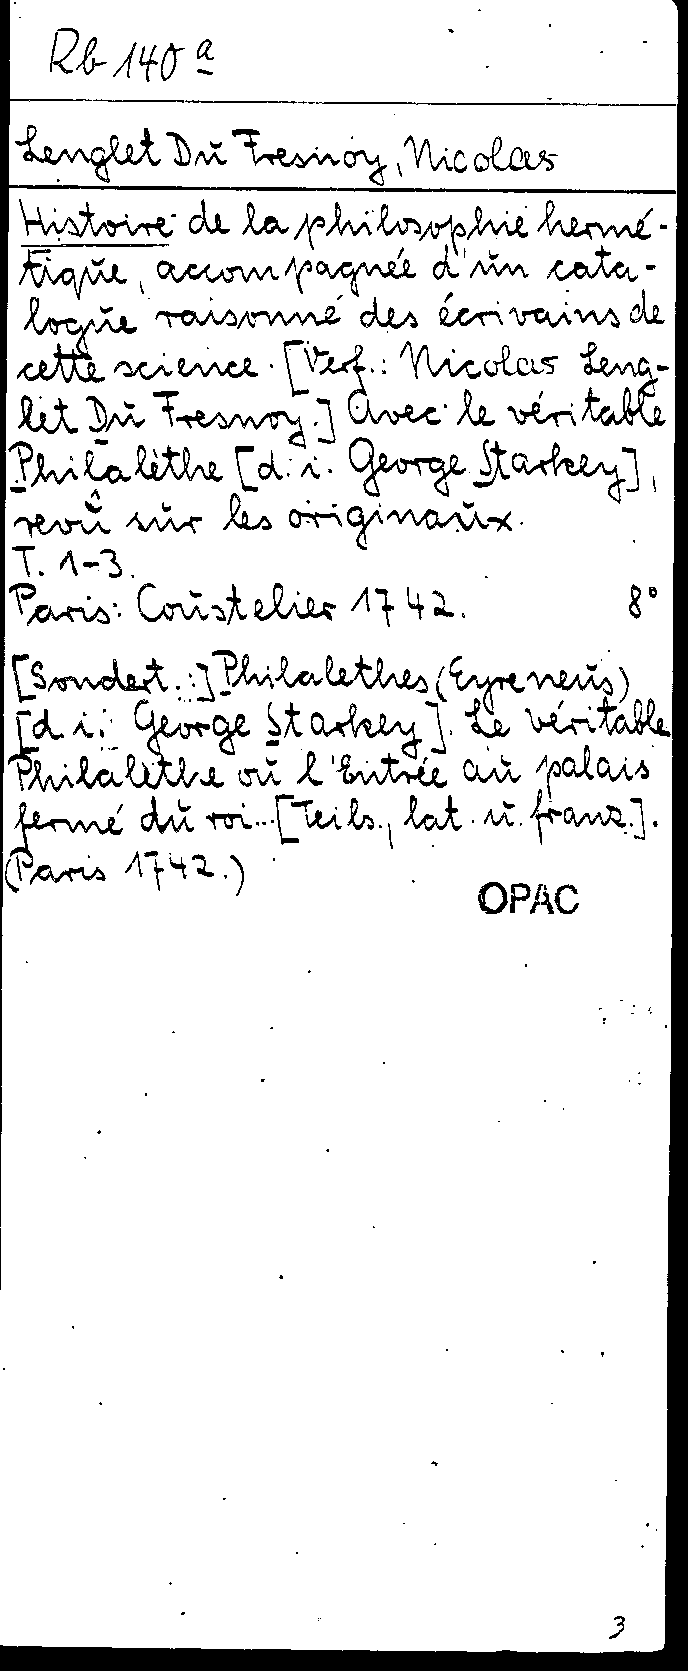 Rb 140 a
Lenglet Du Fresnoy, Nicolas
Histoire de la philosophie hermé-
tique, accompagnée d'un cata-
logue raisonné des écrivains de
cette science. [Verf.: Nicolas Leng-
let Du Fresnoy.] Avec le véritable
Philalèthe [d. i. George Starkey],
revû sur les originaux.
T. 1-3.
Paris: Coustelier 1742. 8°
[Sondert.:] Philalethes (Eyreneus)
[d. i. George Starkey]. Le véritable
Philalèthe ou l'Entrée au palais
fermé du roi... [Teils., lat. u. franz.].
(Paris 1742.)
OPAC
3